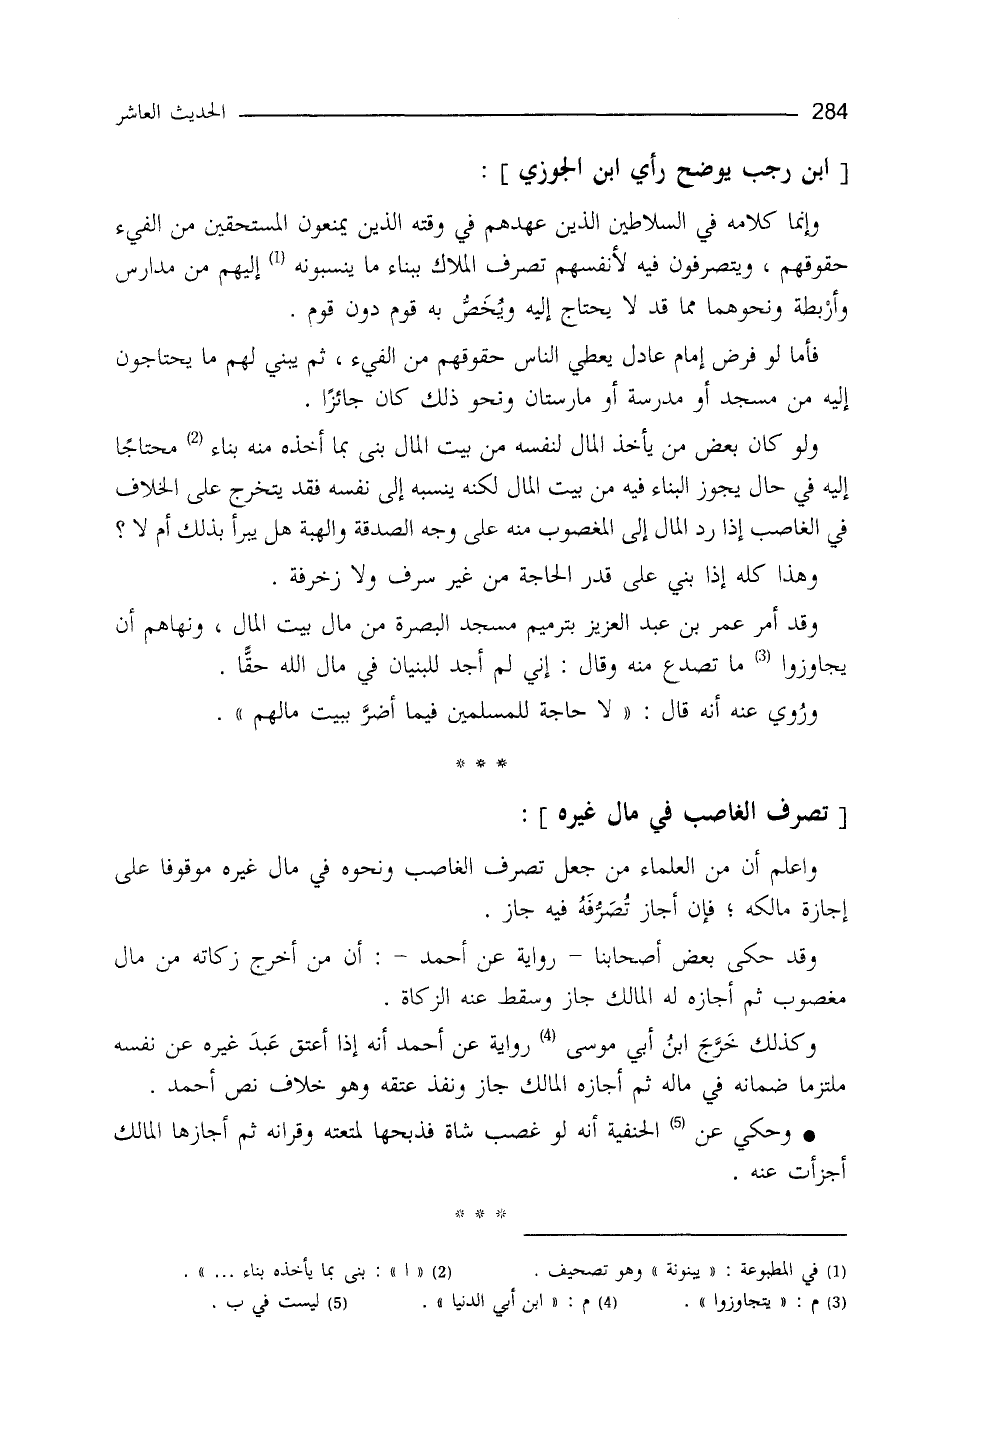 284 الحديث العاشر
[ ابن رجب يوضح رأي ابن الجوزي ] :
وإنما كلامه في السلاطين الذين عهدهم في وقته الذين يمنعون المستحقين من الفيء
حقوقهم ، ويتصرفون فيه لأنفسهم تصرف الملاك ببناء ما ينسبونه (1) إليهم من مدارس
وأرْبطة ونحوهما مما قد لا يحتاج إليه ويُخَصُّ به قوم دون قوم .
فأما لو فرض إمام عادل يعطي الناس حقوقهم من الفيء ، ثم يبني لهم ما يحتاجون
إليه من مسجد أو مدرسة أو مارستان ونحو ذلك كان جائزًا .
ولو كان بعض من يأخذ المال لنفسه من بيت المال بنى بما أخذه منه بناء (2) محتاجًا
إليه في حال يجوز البناء فيه من بيت المال لكنه ينسبه إلى نفسه فقد يتخرج على الخلاف
في الغاصب إذا رد المال إلى المغصوب منه على وجه الصدقة والهبة هل يبرأ بذلك أم لا ؟
وهذا كله إذا بني على قدر الحاجة من غير سرف ولا زخرفة .
وقد أمر عمر بن عبد العزيز بترميم مسجد البصرة من مال بيت المال ، ونهاهم أن
يجاوزوا (3) ما تصدع منه وقال : إني لم أجد للبنيان في مال الله حقًّا .
ورُوي عنه أنه قال : « لا حاجة للمسلمين فيما أضرَّ ببيت مالهم » .
* * *
[ تصرف الغاصب في مال غيره ] :
واعلم أن من العلماء من جعل تصرف الغاصب ونحوه في مال غيره موقوفا على
إجازة مالكه ؛ فإن أجاز تُصَرُّفَهُ فيه جاز .
وقد حكى بعض أصحابنا – رواية عن أحمد – : أن من أخرج زكاته من مال
مغصوب ثم أجازه له المالك جاز وسقط عنه الزكاة .
وكذلك خَرَّجَ ابنُ أبي موسى (4) رواية عن أحمد أنه إذا أعتق عَبدَ غيره عن نفسه
ملتزما ضمانه في ماله ثم أجازه المالك جاز ونفذ عتقه وهو خلاف نص أحمد .
● وحكي عن (5) الحنفية أنه لو غصب شاة فذبحها لمتعته وقرانه ثم أجازها المالك
أجزأت عنه .
* * *
(1) في المطبوعة : « يبنونة » وهو تصحيف . (2) « ا » : بنى بما يأخذه بناء ... » .
(3) م : « يتجاوزوا » . (4) م : « ابن أبي الدنيا » . (5) ليست في ب .